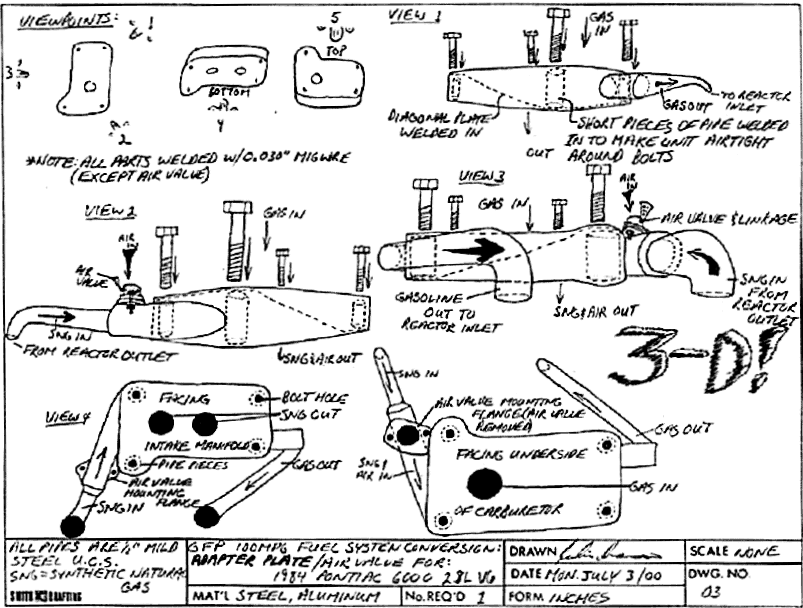 VIEWPOINTS:
1
5
TOP
3
BOTTOM
2
4
*NOTE: ALL PARTS WELDED W/0.030" MIGWIRE
(EXCEPT AIR VALVE)
VIEW 1
GAS
IN
DIAGONAL PLATE
WELDED IN
OUT
GAS OUT
TO REACTOR
INLET
SHORT PIECES OF PIPE WELDED
IN TO MAKE UNIT AIRTIGHT
AROUND BOLTS
VIEW 2
AIR
IN
GAS IN
AIR
VALVE
SNG IN
FROM REACTOR OUTLET
SNG & AIR OUT
VIEW 3
GAS IN
AIR
IN
AIR VALVE & LINKAGE
GASOLINE
OUT TO
REACTOR INLET
SNG & AIR OUT
SNG IN
FROM
REACTOR
OUTLET
3-D!
VIEW 4
FACING
BOLT HOLE
SNG OUT
INTAKE MANIFOLD
PIPE PIECES
AIR VALVE
MOUNTING
FLANGE
SNG IN
GAS OUT
SNG IN
AIR VALVE MOUNTING
FLANGE (AIR VALVE
REMOVED)
GAS OUT
SNG &
AIR IN
FACING UNDERSIDE
GAS IN
OF CARBURETOR
ALL PIPES ARE MILD
STEEL U.C.S.
SNG=SYNTHETIC NATURAL
GAS
GFP 100MPG FUEL SYSTEM CONVERSION:
ADAPTER PLATE/AIR VALVE FOR:
1984 PONTIAC 6000 2.8L V6
DRAWN
SCALE NONE
DATE MON. JULY 3/00
DWG. NO.
03
DRAFTING
MAT'L STEEL, ALUMINUM
No. REQ'D 1
FORM INCHES